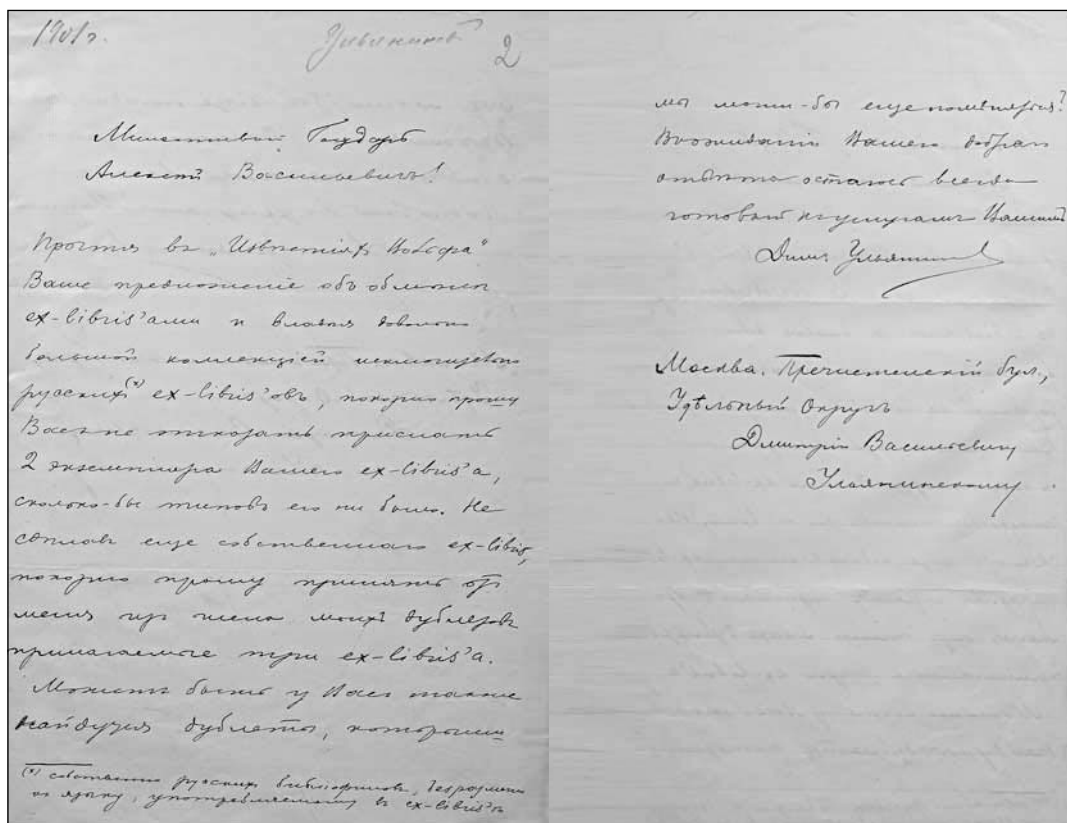 1901 г.
Ульянинск
2
Милостивый Государь
Алексѣй Васильевичъ!
Прочтя въ „Извѣстіяхъ Вольфа“
Ваше предложеніе объ обмѣнѣ
ex-libris'ами и владѣя довольно
большой коллекціей исключительно
русскихъ(*) ex-libris'овъ, покорно прошу
Васъ не отказать прислать
2 экземпляра Вашего ex-libris'а,
сколько-бы типовъ его ни было. Не
сдѣлавъ еще собственнаго ex-libris,
покорно прошу принять отъ
меня изъ числа моихъ дублетовъ
прилагаемые три ex-libris'а.
Можетъ быть у Васъ также
найдутся дублеты, которыми
(*) собственно русскихъ библіофиловъ, безразлично
по языку, употребляемому въ ex-libris'ѣ
мы могли-бы еще помѣняться?
Въ ожиданіи Вашего добраго
отвѣта остаюсь всегда
готовый къ услугамъ Вашимъ
Дмит. Ульянинск
Москва. Пречистенскій бул.,
Удѣльный Округъ
Дмитрію Васильевичу
Ульянинскому